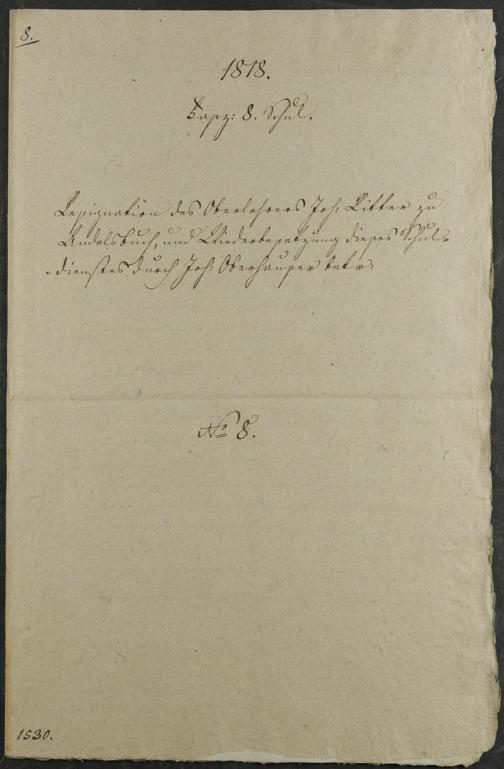 8.
1818.
Fasz: 8. Schul.
Resignation des Oberlehrers Joh: Ritter zu
Andelsbuch, und Wiederbesetzung dieses Schul-
-dienstes durch Joh: Oberhauser betr:
No 8.
1530.